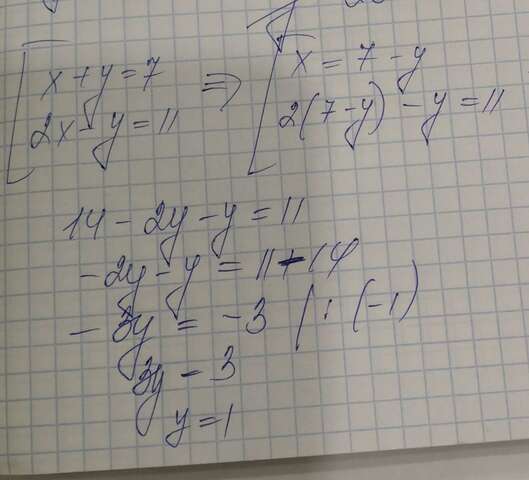 x + y = 7 => x = 7 - y
2x - y = 11 2(7-y) - y = 11
14 - 2y - y = 11
-2y - y = 11 - 14
-3y = -3 | : (-1)
3y - 3
y = 1